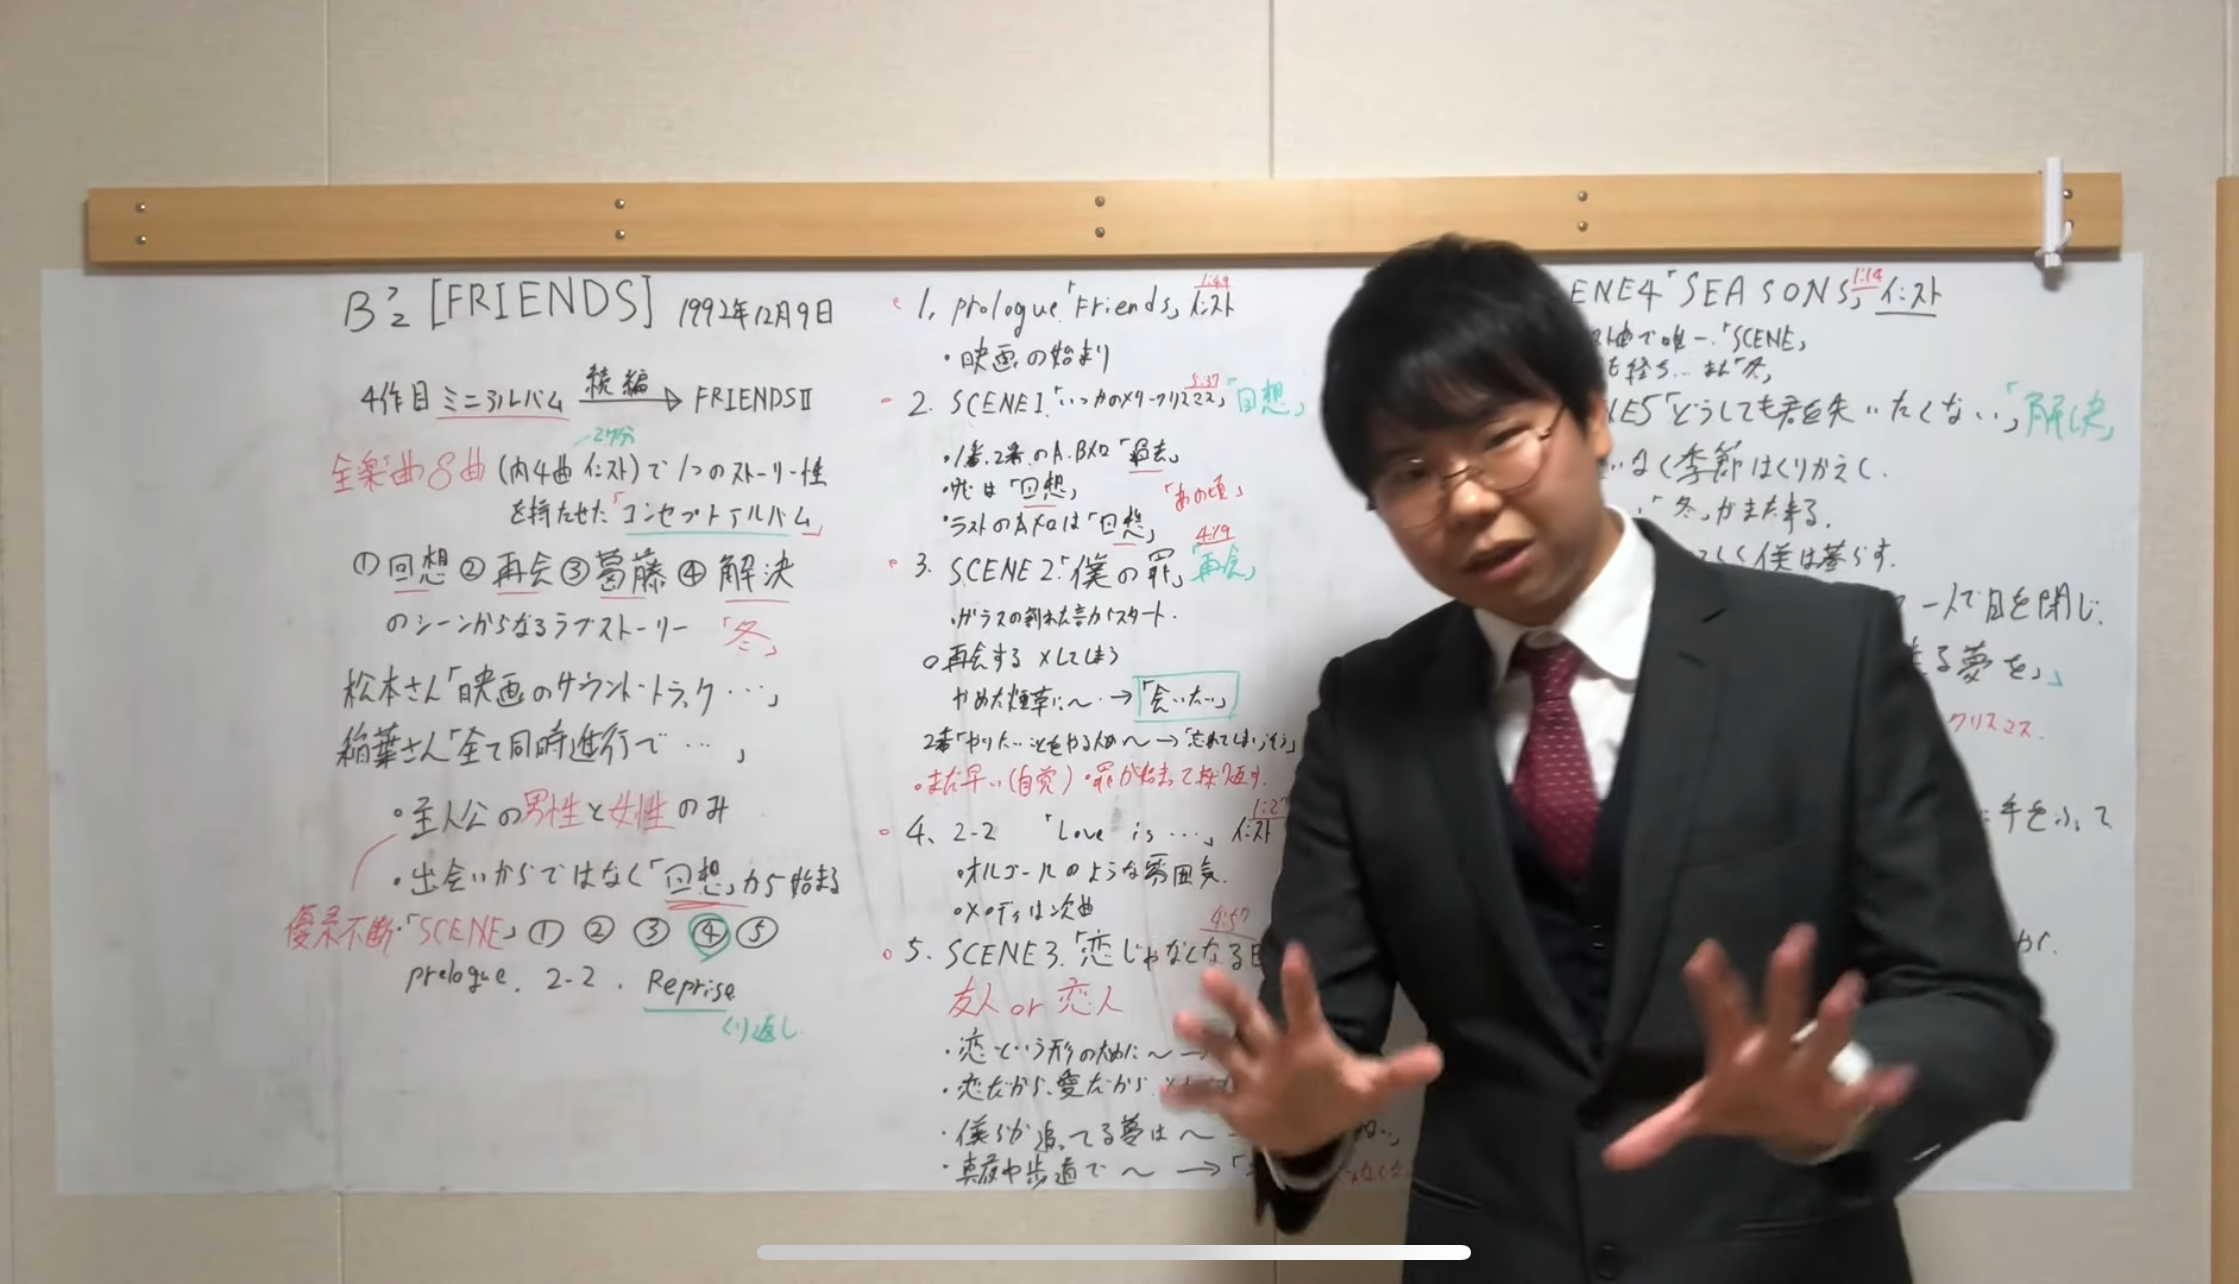 B'z [FRIENDS] 1992年12月9日
4作目ミニアルバム 続編 → FRIENDSⅡ
27分
全楽曲8曲(内4曲インスト)で1つのストーリー性
を持たせた「コンセプトアルバム」
①回想②再会③葛藤④解決
のシーンからなるラブストーリー 「冬」
松本さん「映画のサウンドトラック…」
稲葉さん「全て同時進行で…」
・主人公の男性と女性のみ
・出会いからではなく「回想」から始まる
優柔不断・「SCENE」①②③④⑤
prologue. 2-2. Reprise
くり返し
1:49
1, prologue「Friends」インスト
・映画の始まり
5:37
2. SCENE1.「いつかのメリークリスマス」「回想」
・1番、2番のA.Bメロ「過去」
・サビは「回想」 「あの頃」
・ラストのAメロは「回想」
4:19
3. SCENE2.「僕の罪」「再会」
・ガラスの割れた音がスタート.
○再会する メしてしまう
やめた煙草に〜→「会いたい」
2番「やりたいことをやるため〜→「忘れてしまいそう」
・まだ早い(自覚)・罪が始まって繰り返す.
1:2
4、2-2 「Love is …」インスト
・オルゴールのような雰囲気.
・メロディは次曲
4:57
5. SCENE3.「恋じゃなくなる日
友人 or 恋人
・恋という形のために〜→
・恋だから、愛だから
・僕らが追ってる夢は〜
・真夜中歩道で〜→「
ENE4「SEASONS」1:14 インスト
スト曲で唯一.「SCENE」
も経ち… また「冬」
NE5「どうしても君を失いたくない」「解決」
いなく季節はくりかえし.
「冬」がまた来る.
しく僕は暮らす.
一人で目を閉じ.
る夢を」
クリスマス.
手をふって
から.